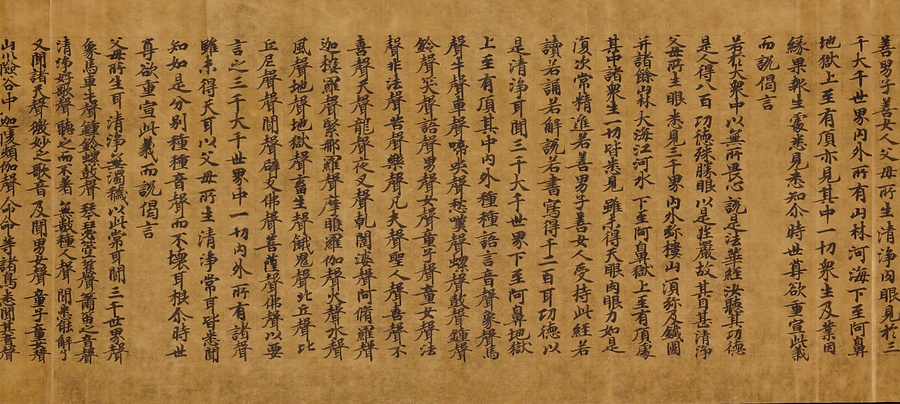 善男子善女人父母所生清淨肉眼見於三
千大千世界內外所有山林河海下至阿鼻
地獄上至有頂亦見其中一切衆生及業因
緣果報生處悉見悉知尒時世尊欲重宣此義
而說偈言
若於大衆中以無所畏心說是法華經汝聽其功德
是人得八百功德殊勝眼以是莊嚴故其目甚清淨
父母所生眼悉見三千界內外弥樓山湏弥及鐵圍
并諸餘山林大海江河水下至阿鼻獄上至有頂處
其中諸衆生一切皆悉見雖未得天眼肉眼力如是
復次常精進若善男子善女人受持此經若
讀若誦若解說若書寫得千二百耳功德以
是清淨耳聞三千大千世界下至阿鼻地獄
上至有頂其中內外種種語言音聲象聲馬
聲牛聲車聲啼哭聲愁嘆聲螺聲鼓聲鍾聲
鈴聲笑聲語聲男聲女聲童子聲童女聲法
聲非法聲苦聲樂聲凡夫聲聖人聲喜聲不
喜聲天聲龍聲夜叉聲乹闥婆聲阿脩羅聲
迦樓羅聲緊那羅聲摩睺羅伽聲火聲水聲
風聲地聲地獄聲畜生聲餓鬼聲比丘聲比
丘尼聲聲聞聲辟支佛聲菩薩聲佛聲以要
言之三千大千世界中一切內外所有諸聲
雖未得天耳以父母所生清淨常耳皆悉聞
知如是分别種種音聲而不壞耳根尒時世
尊欲重宣此義而說偈言
父母所生耳清淨無濁穢以此常耳聞三千世界聲
象馬車牛聲鍾鈴螺鼓聲琴瑟箜篌聲簫笛之音聲
清淨好歌聲聽之而不著無數種人聲聞悉能解了
又聞諸天聲微妙之歌音及聞男女聲童子童女聲
山川險谷中迦陵頻伽聲命命等諸鳥悉聞其音聲